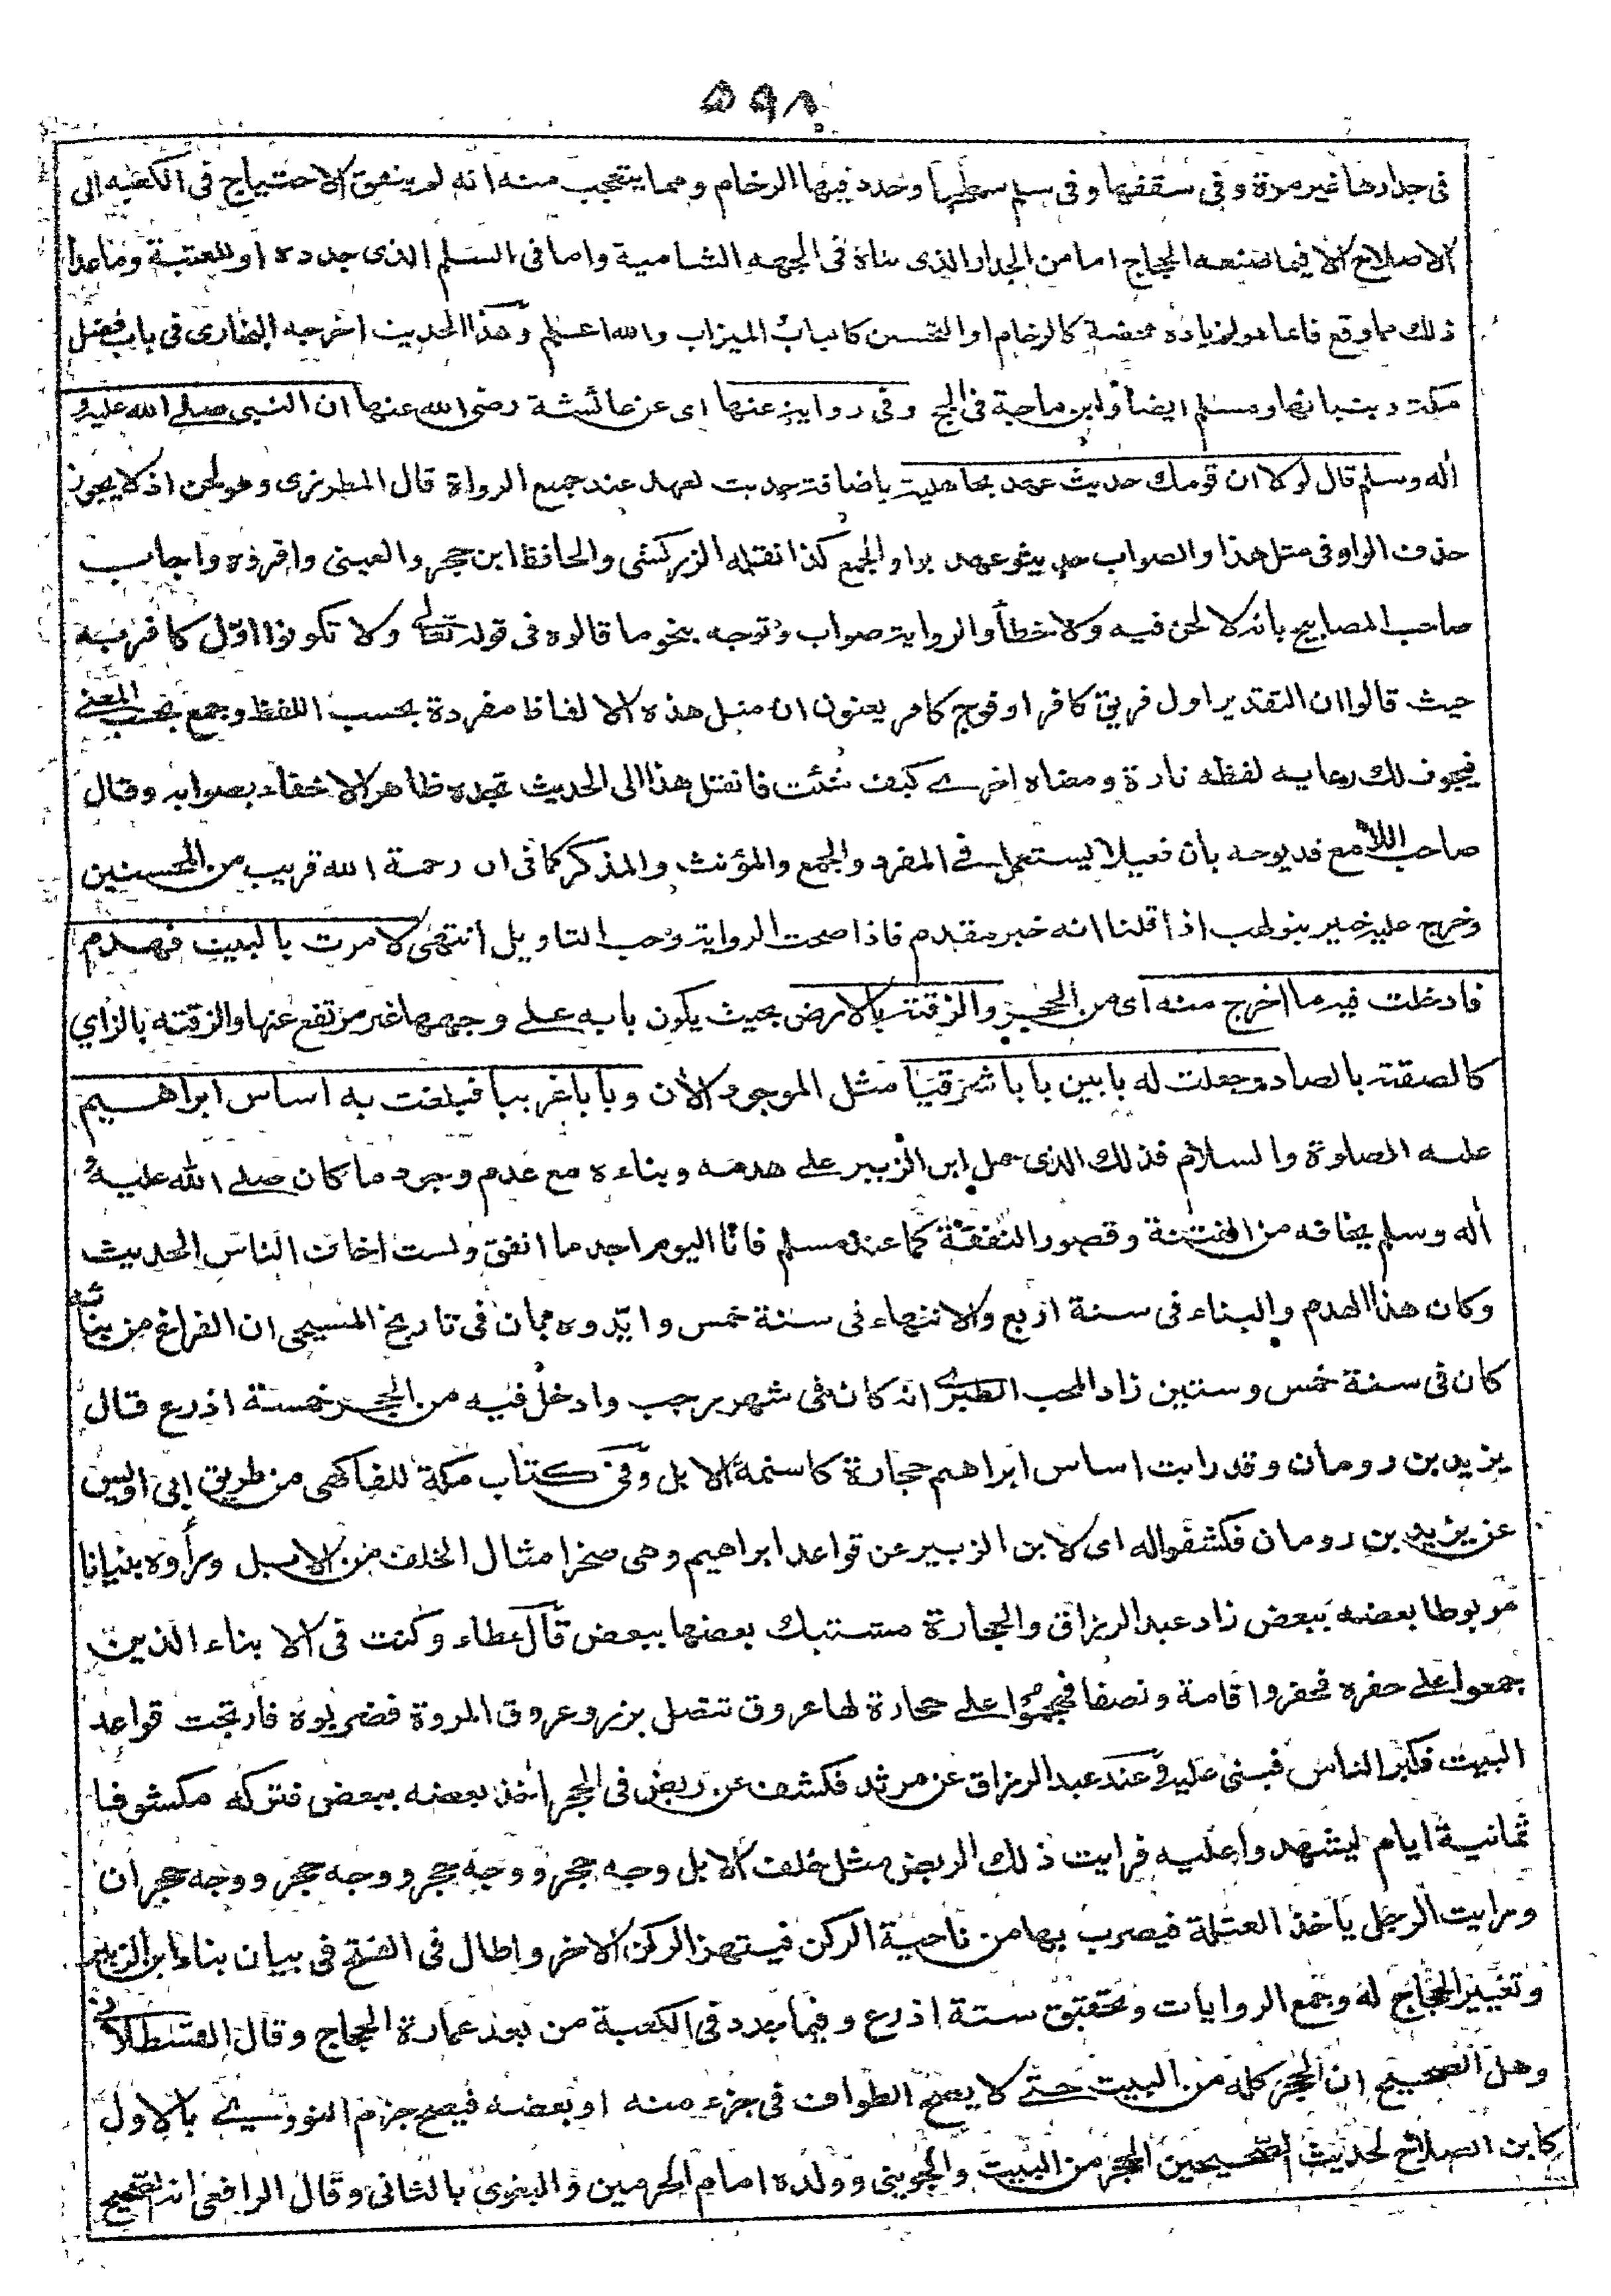 ٥٩٨
فى جدارها غير مرة وفى سقفها وفى سلم سطحها وجدد فيها الرخام ومما يتعجب منه انه لم يتفق الاحتياج فى الكعبه الى
الاصلاح الا فيما صنعه الحجاج اما من الجدار الذى بناه فى الجهه الشامية واما فى السلم الذى جدده او للعتبة وما عدا
ذلك مما وقع فانما هو لزيادة محضة كالرخام او التحسين كالباب والميزاب والله اعلم وهذا الحديث اخرجه البخارى فى باب فضل
مكة وبنيانها ومسلم ايضا وابن ماجة فى الحج وفى رواية عنها اى عن عائشة رضى الله عنها ان النبى صلے الله عليه و
اله وسلم قال لولا ان قومك حديث عهد بجاهلية باضافة حديث لعهد عند جميع الرواة قال المطرزى وهو لحن اذ لا يجوز
حذف الواو فى مثل هذا والصواب حديثو عهد بواو الجمع كذا نقله الزركشى والحافظ ابن حجر والعينى واقروه واجاب
صاحب المصابيح بانه لا لحن فيه ولا خطأ والرواية صواب وتوجه بنحو ما قالوه فى قوله تعالے ولا تكونوا اول كافر به
حيث قالوا ان التقدير اول فريق كافر او فوج كافر يعنون ان مثل هذه الالفاظ مفردة بحسب اللفظ وجمع بحسب المعنى
فيجوز لك رعاية لفظه تارة ومعناه اخرے كيف شئت فانقل هذا الى الحديث تجده ظاهرا لاخفاء بصوابه وقال
صاحب اللامع قد يوجه بان فعيلا يستعمل فى المفرد والجمع والمؤنث والمذكر كما فى ان رحمة الله قريب من المحسنين
وخرج عليه خبير بنو لهب اذا قلنا انه خبر مقدم فاذا صحت الرواية وجب التاويل انتهى لامرت بالبيت فهدم
فادخلت فيه ما اخرج منه اى من الحجر والزقته بالارض بحيث يكون بابه علے وجهها غير مرتفع عنها والزقته بالزاي
كالصقته بالصاد وجعلت له بابين بابا شرقيا مثل الموجود الأن وبابا غربيا فبلغت به اساس ابراهيم
عليه الصلوة والسلام فذلك الذى حمل ابن الزبير على هدمه وبناءه مع عدم وجود ما كان صلے الله عليه و
اله وسلم يخافه من الفتنة وقصور النفقة كما عند مسلم فانا اليوم اجد ما انفق ولست اخاف الناس الحديث
وكان هذا الهدم والبناء فى سنة اربع والانتهاء فى سنة خمس وايدوه بان فى تاريخ المسبحى ان الفراغ من بنائه
كان فى سنة خمس وستين زاد المحب الطبرے انه كان فى شهر رجب وادخل فيه من الحجر خمسة اذرع قال
يزيد بن رومان وقد رايت اساس ابراهيم حجارة كاسنمة الابل وفى كتاب مكة للفاكهى من طريق ابى اويس
عن يزيد بن رومان فكشفوا له اى لابن الزبير عن قواعد ابراهيم وهى صخر امثال الخلف من الابل ورأوه بنيانا
مربوطا بعضه ببعض زاد عبد الرزاق والحجارة مشتبك بعضها ببعض قال عطاء وكنت فى الابناء الذين
جمعوا على حفره فحفروا قامة ونصفا فهجموا علے حجارة لها عروق تتصل بزرد عروق المروة فضربوه فارتجت قواعد
البيت فكبر الناس فبنى عليه وعند عبد الرزاق عن مرثد فكشف عن ربض فى الحجر اخذ بعضه ببعض فتركه مكشوفا
ثمانية ايام ليشهدوا عليه فرايت ذلك الربض مثل خلف الابل وجه حجر ووجه حجر ووجه حجر ووجه حجران
ورايت الرجل ياخذ العتلة فيضرب بها من ناحية الركن فيهتز الركن الاخر واطال فى الفتح فى بيان بناء ابن الزبير
وتغيير الحجاج له وجمع الروايات وتحقيق ستة اذرع وفيما جدد فى الكعبة من بعد عمارة الحجاج وقال القسطلانے
وهل الصحيح ان الحجر كله من البيت حتے لا يصح الطواف فى جزء منه او بعضه فيصح جزم النووے بالاول
كابن الصلاح لحديث الصحيحين الحجر من البيت والجوينى وولده امام الحرمين والبغوى بالثانى وقال الرافعى انه الصحيح